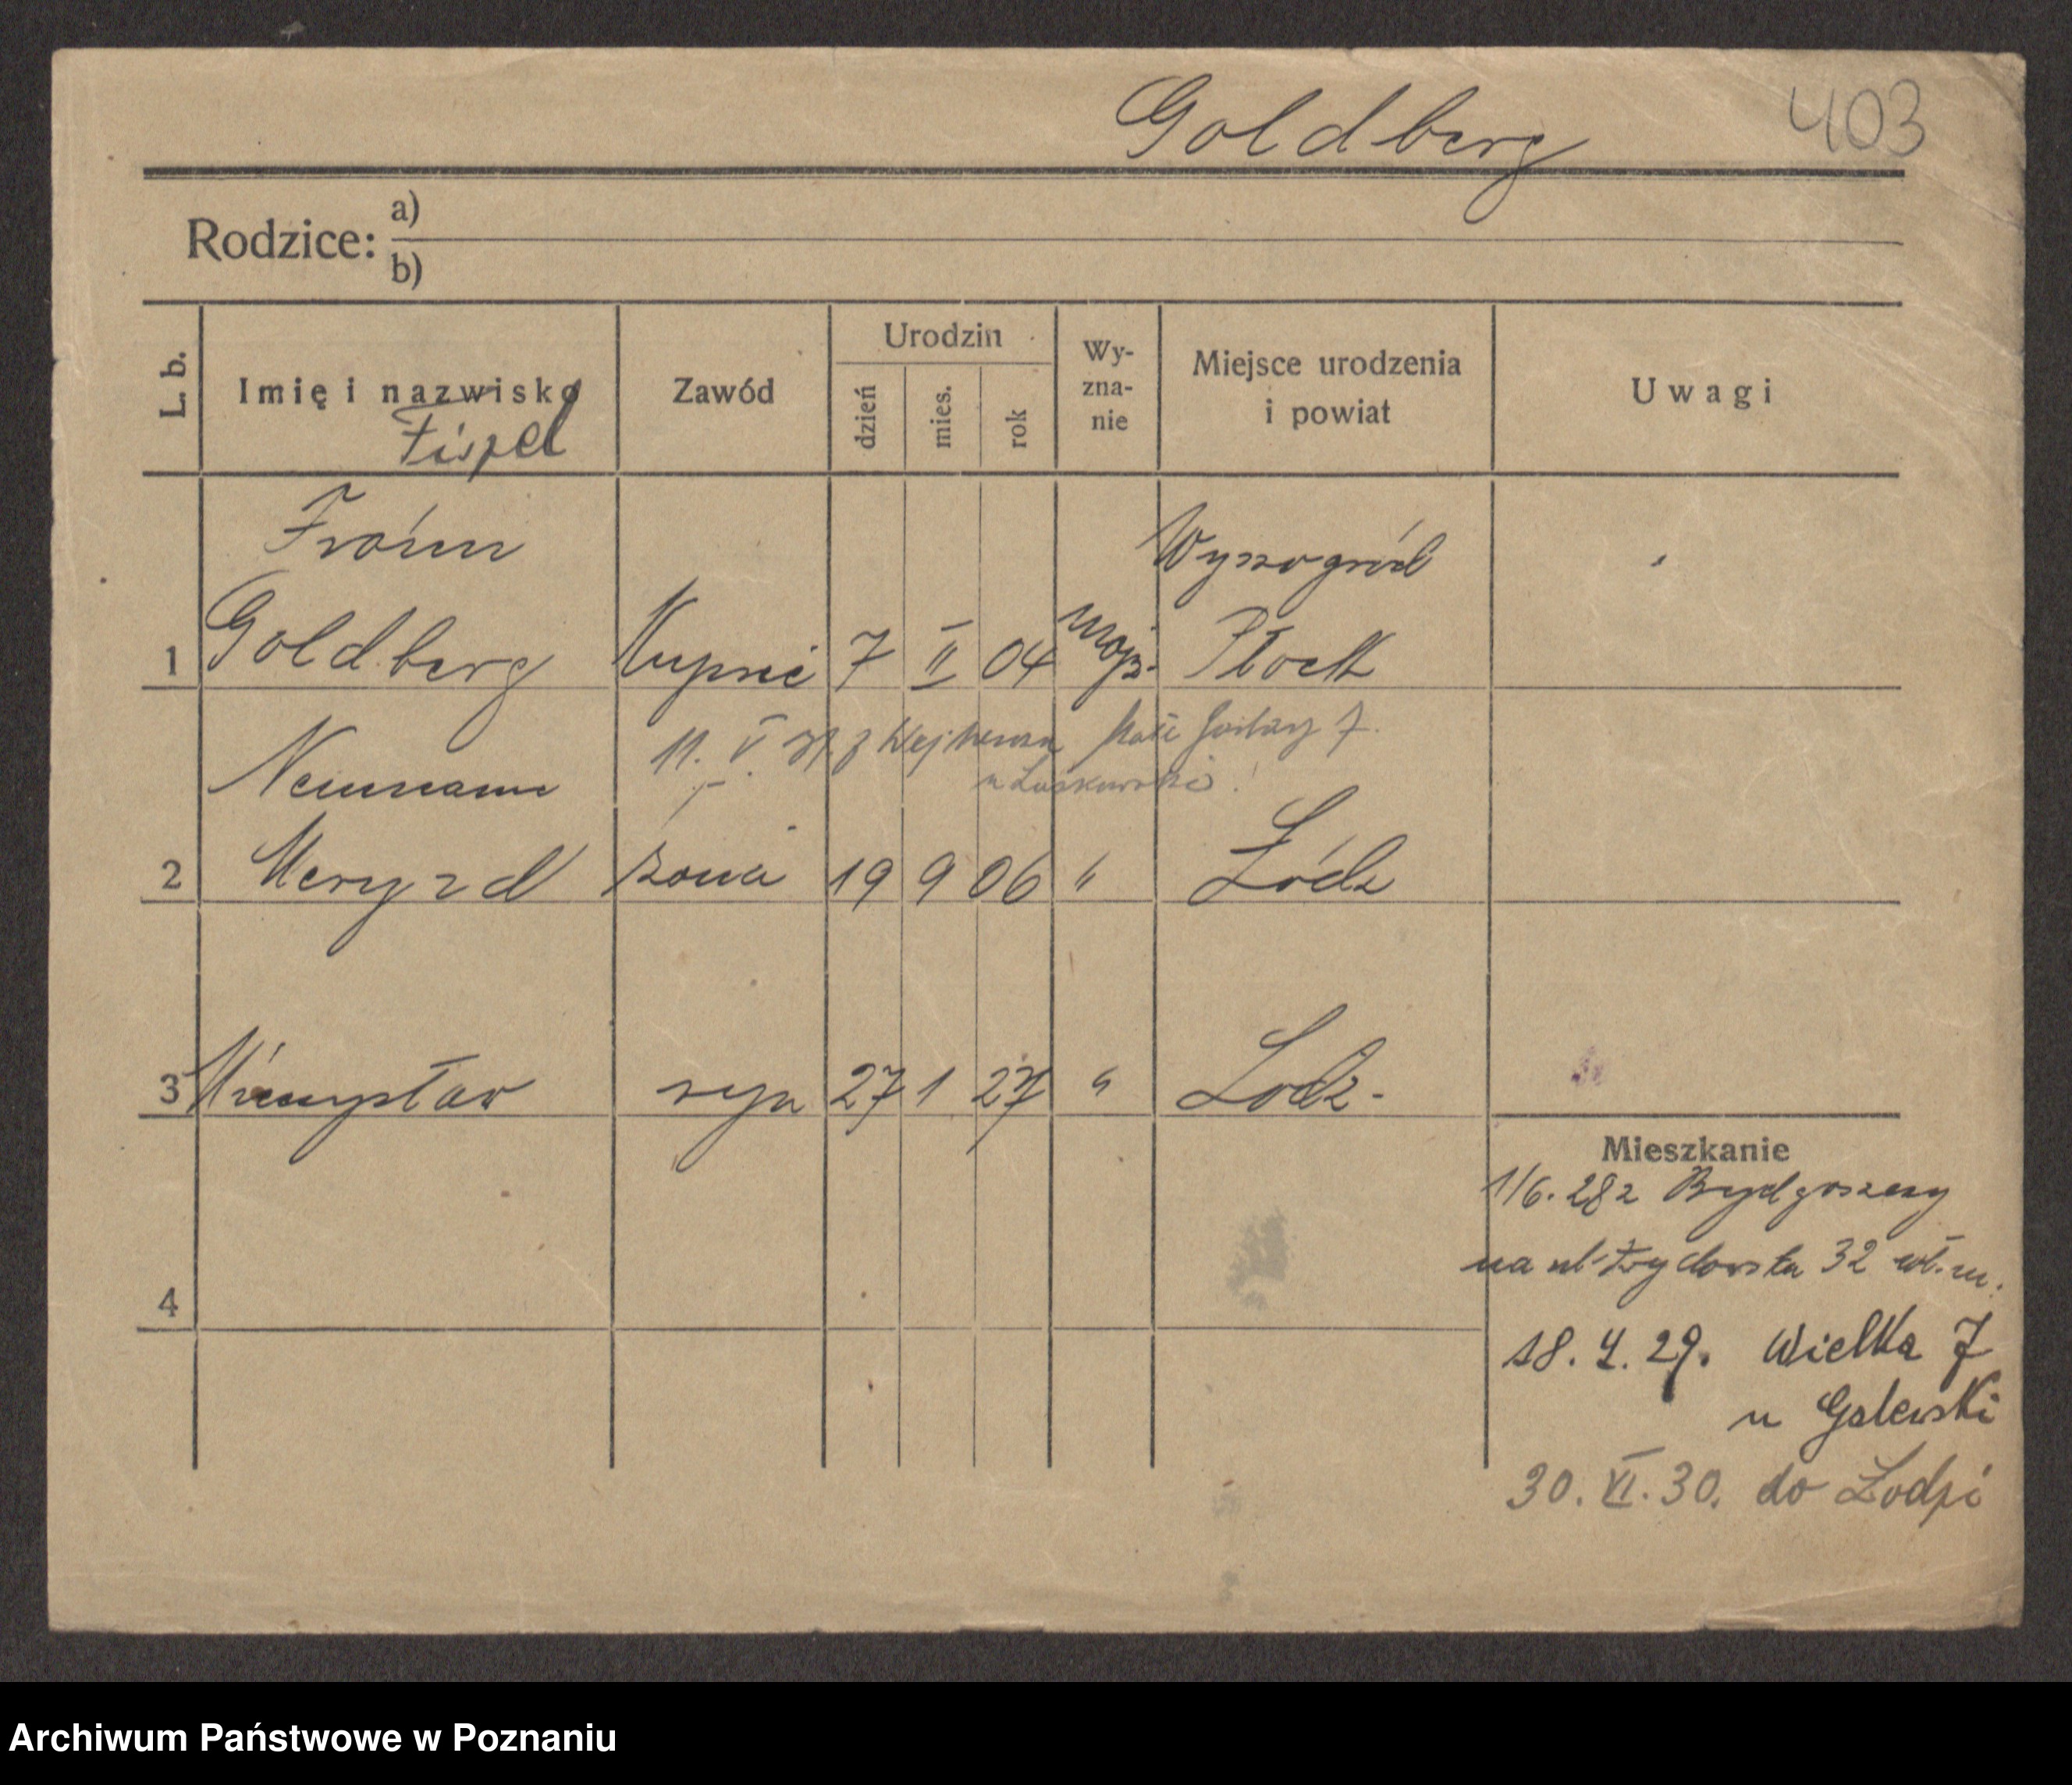 Goldberg 403
Rodzice: a)
b)
L. b. Imię i nazwisko Zawód Urodzin dzień mies. rok Wy-zna-nie Miejsce urodzenia i powiat Uwagi
Fiszel
Froim Wyszogród
1 Goldberg Kupiec 7 II 04 mojż. Płock
11. V. 31 z Wejherowa Małe Garbary 7.
Neumann u Laskowski
2 żona 19 9 06 " Łódz
3 Mieczysław syn 27 1 27 " Lodź.
Mieszkanie
1/6. 28 z Bydgoszczy
na ul Żydowska 32 wł. m.
4
18. 4. 29. Wielka 7
u Galewski
30. VI. 30. do Łodzi
Archiwum Państwowe w Poznaniu